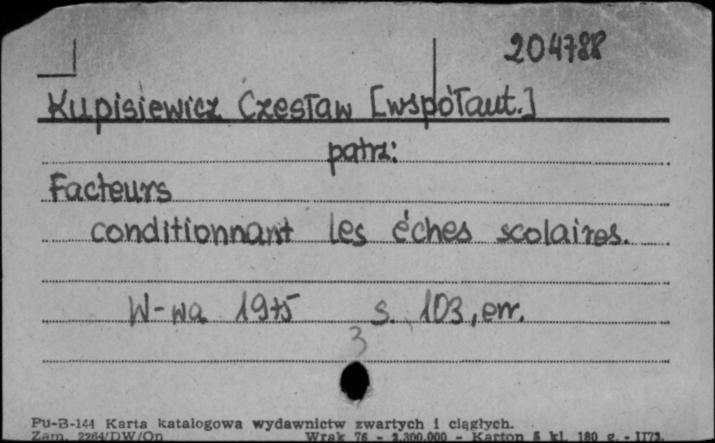 204788
Kupisiewicz Czesław [współaut.]
patrz:
Facteurs
conditionnant les éches scolaires.
W-wa 1975 s. 103, err.
3
Pu-B-144 Karta katalogowa wydawnictw zwartych i ciągłych.
Zam. 2264/DW/On Wrak 76 - 2.300.000 - Karton 5 kl. 180 g. - II72.